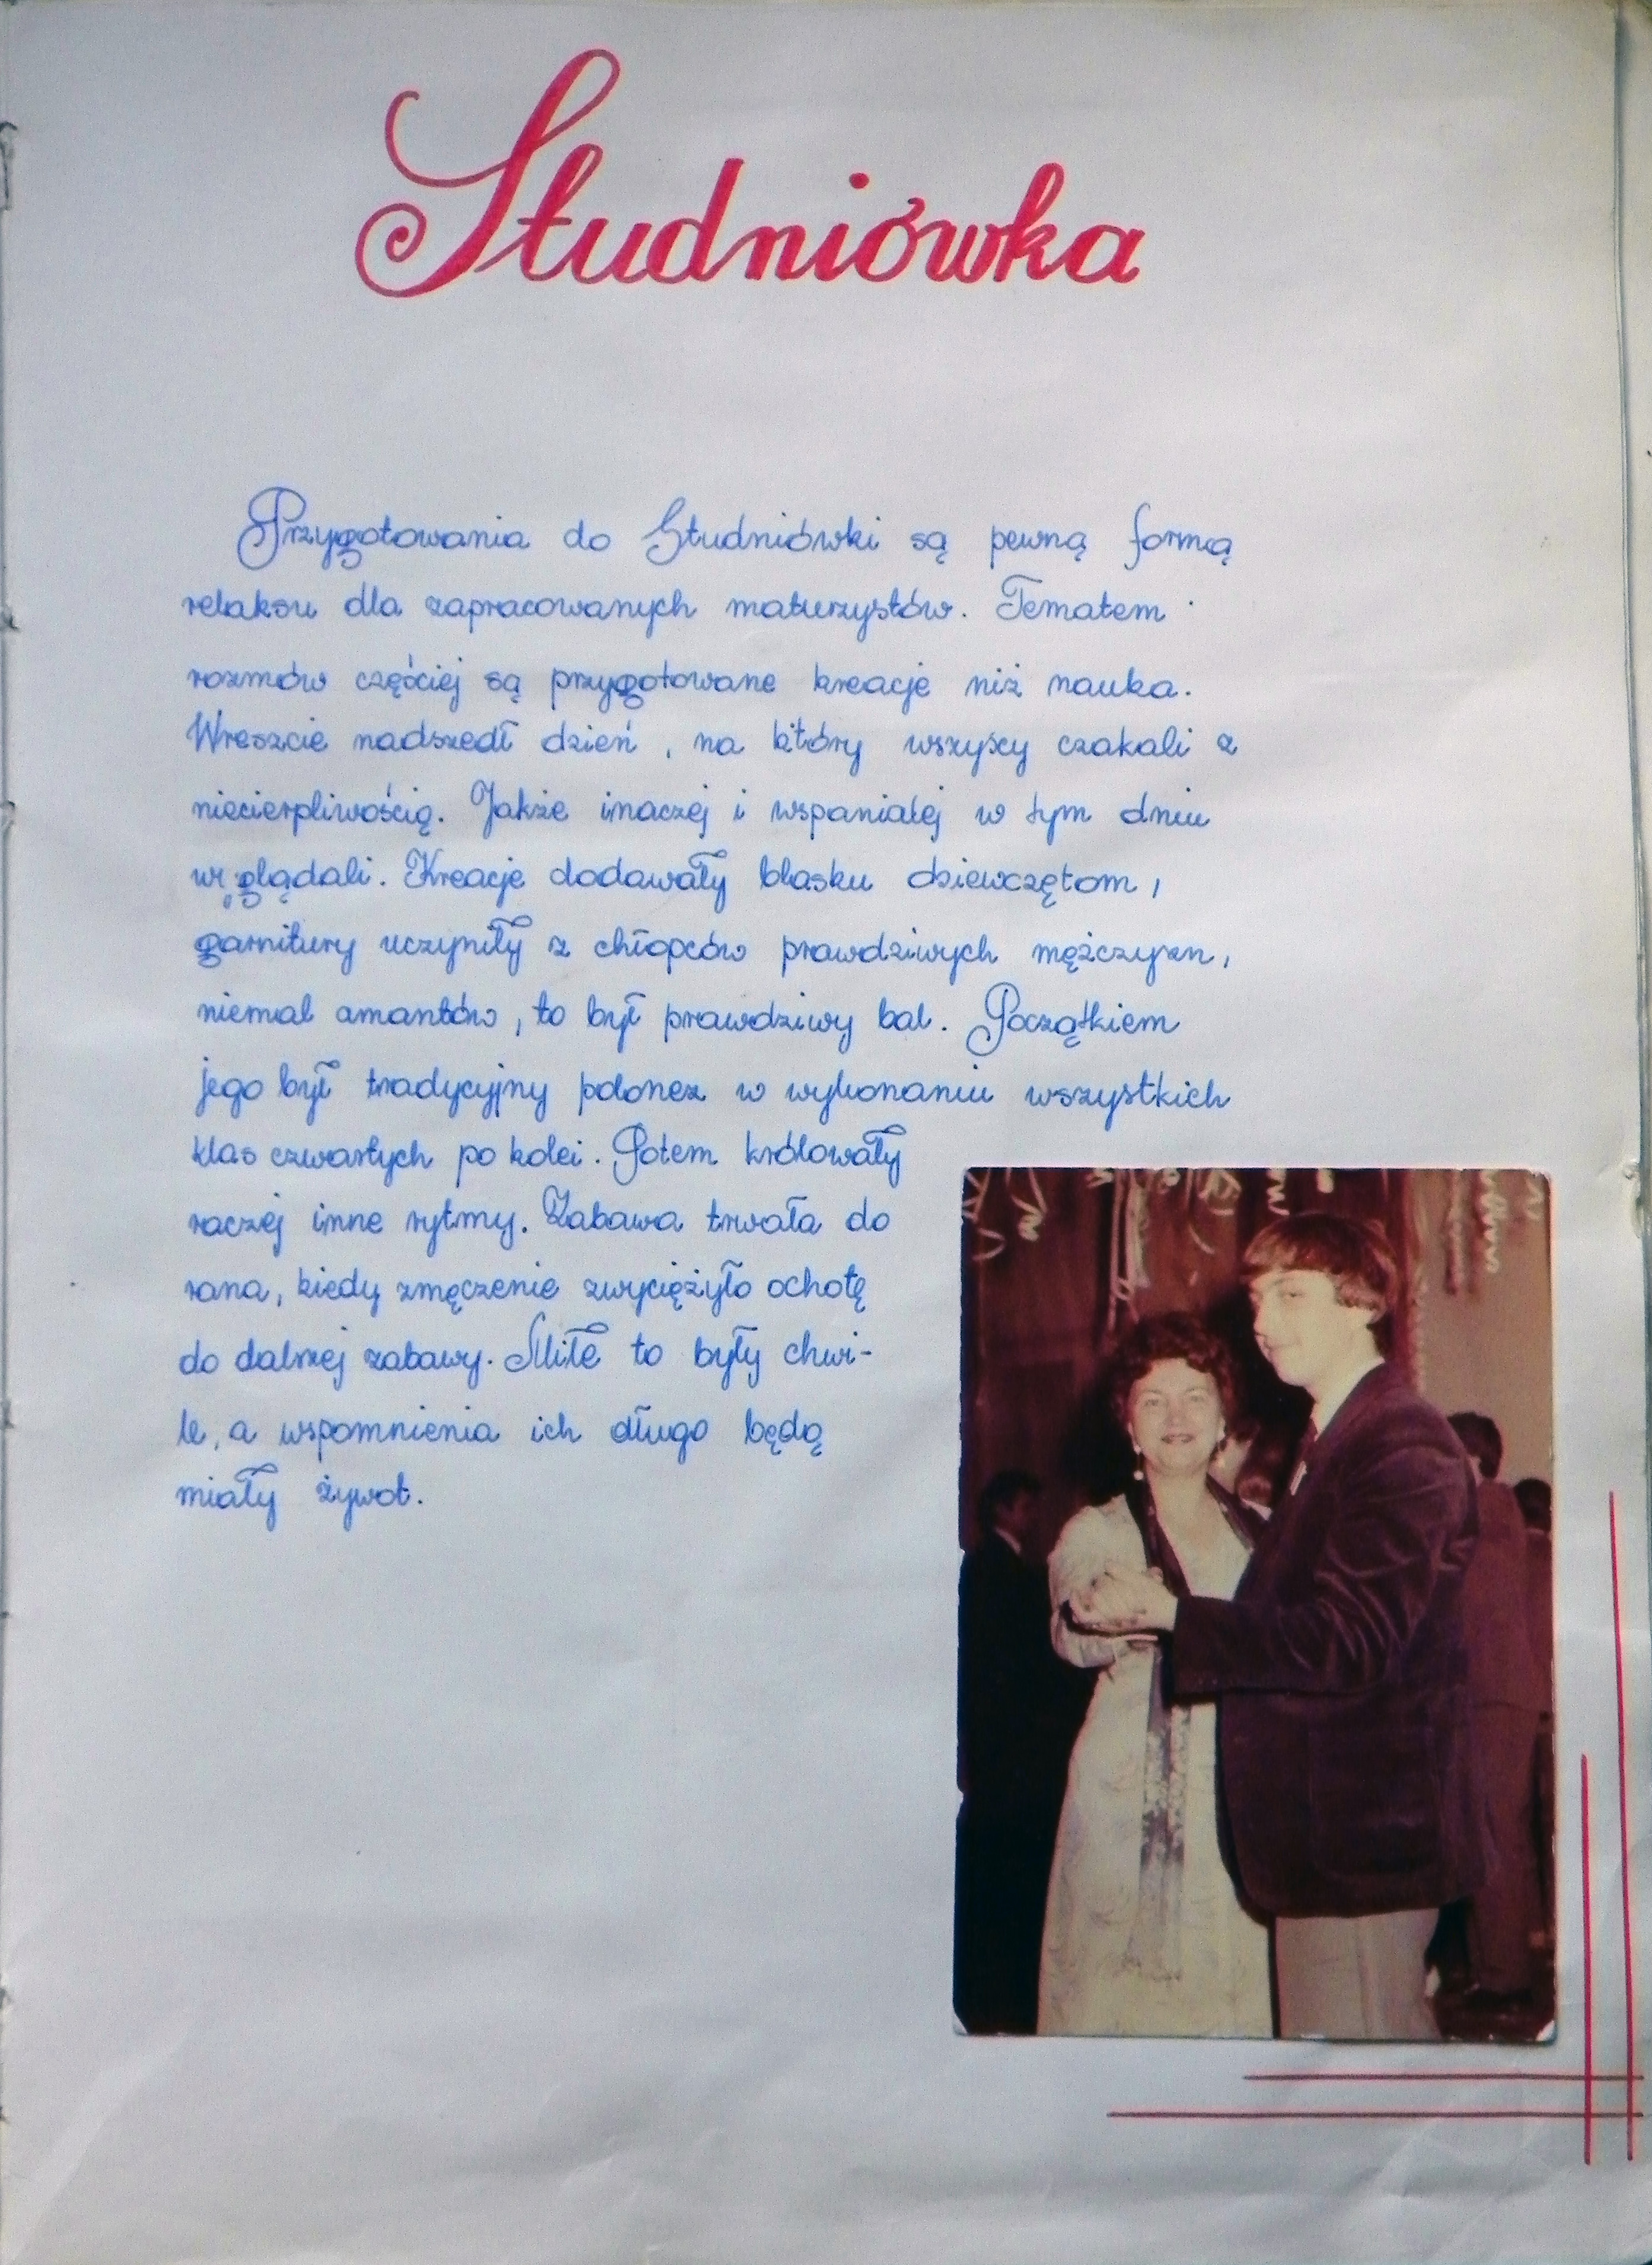 Studniówka
Przygotowania do Studniówki są pewną formą
relaksu dla zapracowanych maturzystów. Tematem
rozmów częściej są przygotowane kreacje niż nauka.
Wreszcie nadszedł dzień, na który wszyscy czakali z
niecierpliwością. Jakże inaczej i wspaniałej w tym dniu
wyglądali. Kreacje dodawały blasku dziewczętom,
garnitury uczyniły z chłopców prawdziwych mężczyzn,
niemal amantów, to był prawdziwy bal. Początkiem
jego był tradycyjny polonez w wykonaniu wszystkich
klas czwartych po kolei. Potem królowały
raczej inne rytmy. Zabawa trwała do
rana, kiedy zmęczenie zwyciężyło ochotę
do dalszej zabawy. Miłe to były chwi-
le, a wspomnienia ich długo będą
miały żywot.